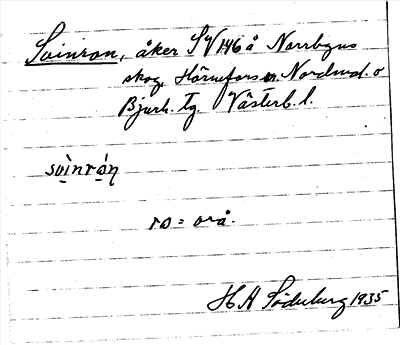 Svinron, åker SV 146 å Norrbyns
skog Hörnefors sn. Nordmal. o
Bjurh. tg. Västerb. l.
svìnròn
ro = vrå.
H A Söderberg 1935